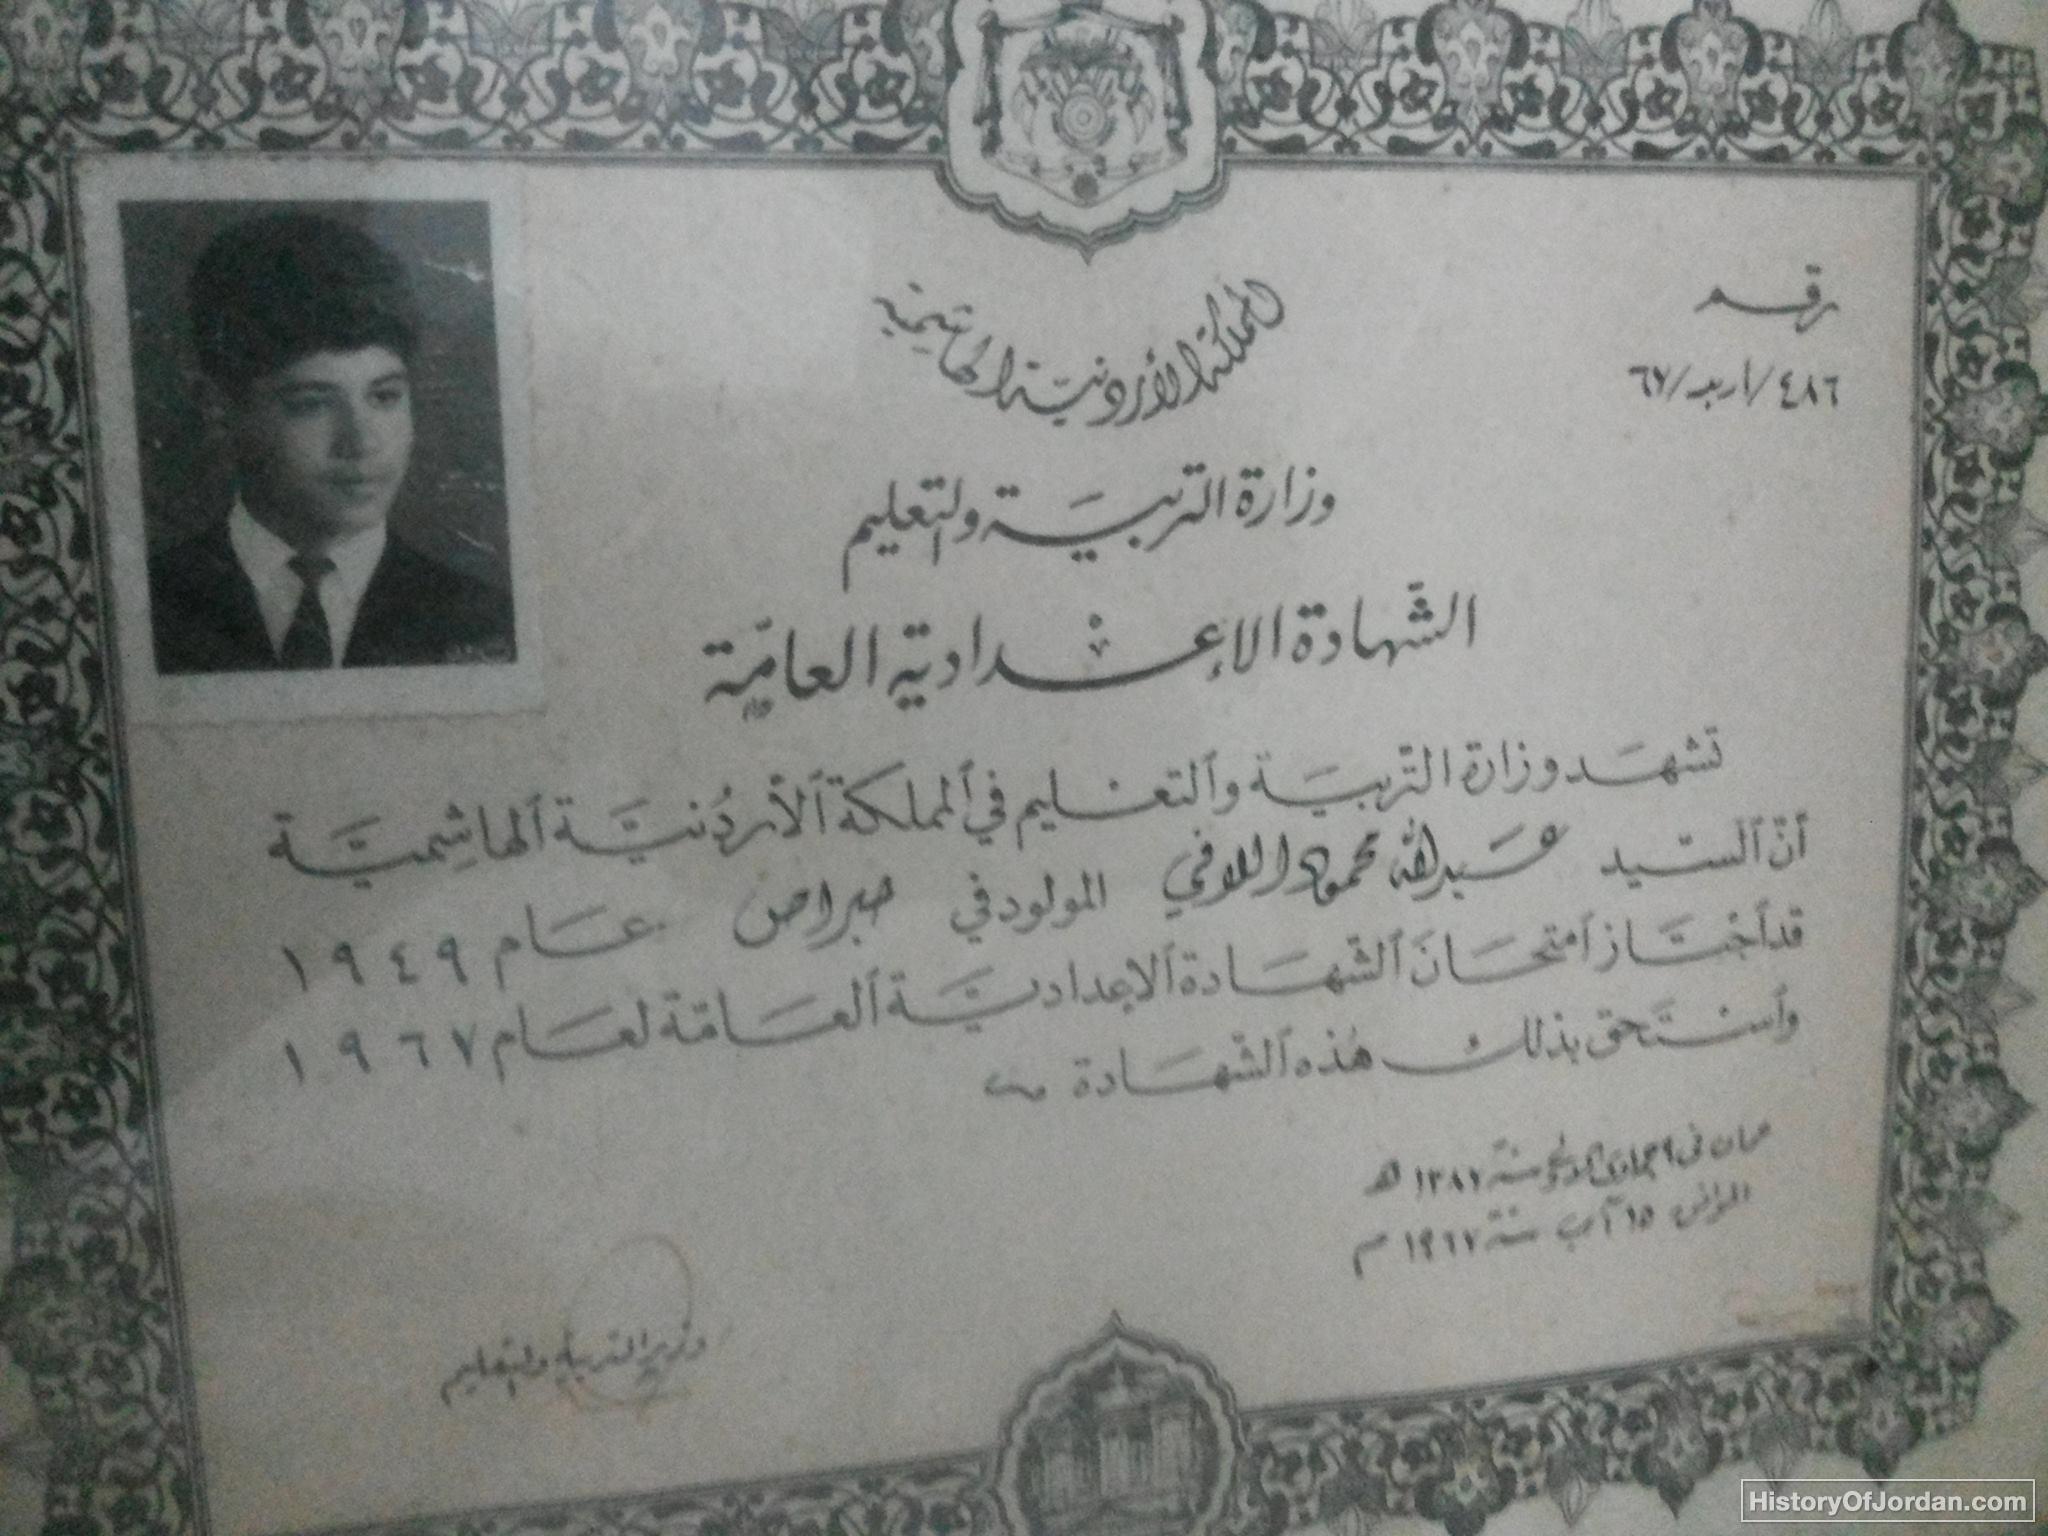 رقم
٤٨٦/اربد/٦٧
المملكة الأردنية الهاشمية
وزارة التربية والتعليم
الشهادة الإعدادية العامة
تشهد وزارة التربية والتعليم في المملكة الأردنية الهاشمية
أن السيد عبدالله محمود اللافي المولود في حبراص عام ١٩٤٩
قد أجتاز أمتحان الشهادة الاعدادية العامة لعام ١٩٦٧
وأستحق بذلك هذه الشهادة
عمان في ٩ جمادى الاولى سنة ١٣٨٧ هـ
الموافق ١٥ آب سنة ١٩٦٧ م
وزير التربية والتعليم
HistoryOfJordan.com